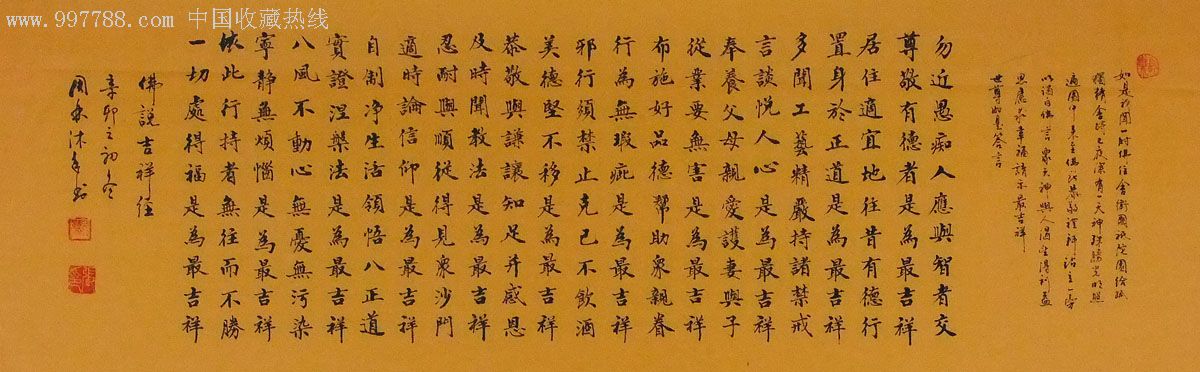 www.997788.com 中国收藏热线
如是我聞一時佛住舍衛國祇陀園給孤
獨精舍時已夜深有一天神殊勝光明照
遍園中來至佛所恭敬禮拜站立一旁
以偈白佛言眾天神與人渴望得利益
思慮求幸福請示最吉祥
世尊如是答言
勿近愚痴人應與智者交
尊敬有德者是為最吉祥
居住適宜地往昔有德行
置身於正道是為最吉祥
多聞工藝精嚴持諸禁戒
言談悅人心是為最吉祥
奉養父母親愛護妻與子
從業要無害是為最吉祥
布施好品德幫助眾親眷
行為無瑕疵是為最吉祥
邪行須禁止克己不飲酒
美德堅不移是為最吉祥
恭敬與謙讓知足并感恩
及時聞教法是為最吉祥
忍耐與順從得見眾沙門
適時論信仰是為最吉祥
自制净生活領悟八正道
實證涅槃法是為最吉祥
八風不動心無憂無污染
寧靜無煩惱是為最吉祥
依此行持者無往而不勝
一切處得福是為最吉祥
佛說吉祥經
辛卯之初冬
沐手書